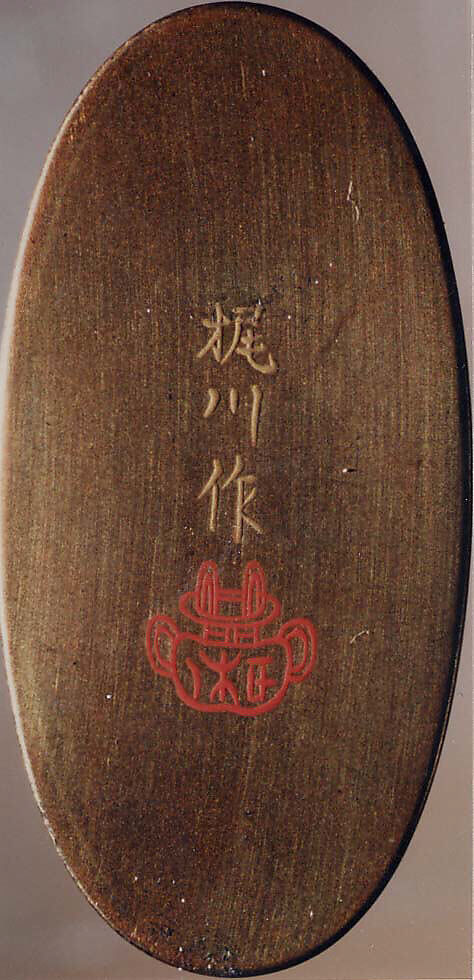 梶川作